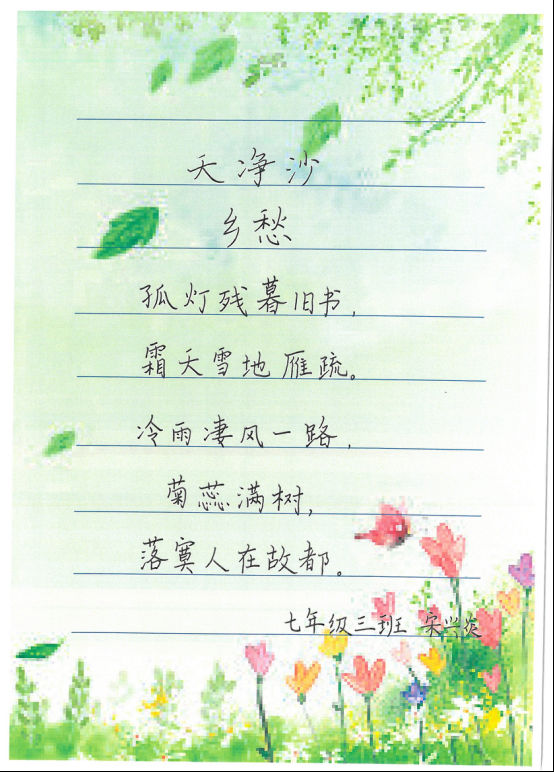 天净沙
乡愁
孤灯残暮旧书,
霜天雪地雁疏。
冷雨凄风一路,
菊蕊满树,
落寞人在故都。
七年级三班 宋兴炎